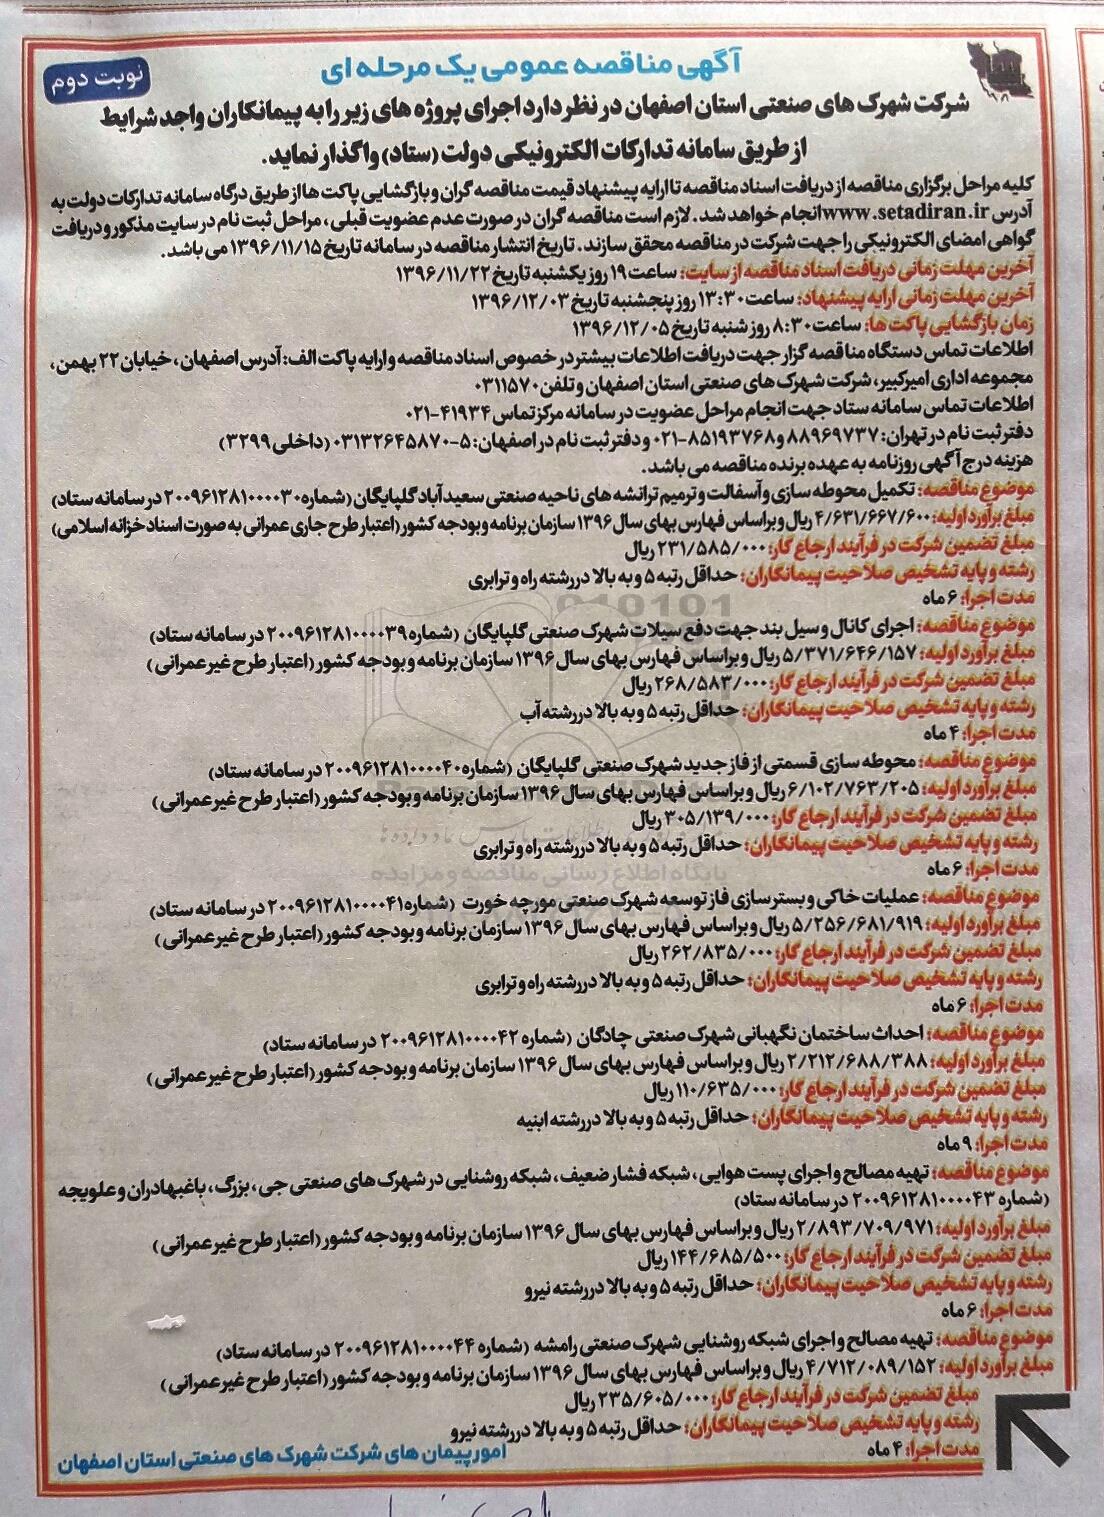 آگهی مناقصه عمومی یک مرحله ای
نوبت دوم
شرکت شهرک های صنعتی استان اصفهان در نظر دارد اجرای پروژه های زیر را به پیمانکاران واجد شرایط
از طریق سامانه تدارکات الکترونیکی دولت (ستاد) واگذار نماید.
کلیه مراحل برگزاری مناقصه از دریافت اسناد مناقصه تا ارایه پیشنهاد قیمت مناقصه گران و بازگشایی پاکت ها از طریق درگاه سامانه تدارکات دولت به
آدرس www.setadiran.ir انجام خواهد شد. لازم است مناقصه گران در صورت عدم عضویت قبلی، مراحل ثبت نام در سایت مذکور و دریافت
گواهی امضای الکترونیکی را جهت شرکت در مناقصه محقق سازند. تاریخ انتشار مناقصه در سامانه تاریخ ۱۳۹۶/۱۱/۱۵ می باشد.
آخرین مهلت زمانی دریافت اسناد مناقصه از سایت: ساعت ۱۹ روز یکشنبه تاریخ ۱۳۹۶/۱۱/۲۲
آخرین مهلت زمانی ارایه پیشنهاد: ساعت ۱۳:۳۰ روز پنجشنبه تاریخ ۱۳۹۶/۱۲/۰۳
زمان بازگشایی پاکت ها: ساعت ۸:۳۰ روز شنبه تاریخ ۱۳۹۶/۱۲/۰۵
اطلاعات تماس دستگاه مناقصه گزار جهت دریافت اطلاعات بیشتر در خصوص اسناد مناقصه و ارایه پاکت الف: آدرس اصفهان، خیابان ۲۲ بهمن،
مجموعه اداری امیرکبیر، شرکت شهرک های صنعتی استان اصفهان و تلفن ۰۳۱۱۵۷۰
اطلاعات تماس سامانه ستاد جهت انجام مراحل عضویت در سامانه مرکز تماس ۴۱۹۳۴-۰۲۱
دفتر ثبت نام در تهران: ۸۸۹۶۹۷۳۷ و ۸۵۱۹۳۷۶۸-۰۲۱ و دفتر ثبت نام در اصفهان: ۵-۰۳۱۳۲۶۴۵۸۷۰ (داخلی ۳۲۹۹)
هزینه درج آگهی روزنامه به عهده برنده مناقصه می باشد.
موضوع مناقصه: تکمیل محوطه سازی و آسفالت و ترمیم ترانشه های ناحیه صنعتی سعیدآباد گلپایگان (شماره ۲۰۰۹۶۱۲۸۱۰۰۰۰۳۰ در سامانه ستاد)
مبلغ برآورد اولیه: ۴/۶۳۱/۶۶۷/۶۰۰ ریال و براساس فهارس بهای سال ۱۳۹۶ سازمان برنامه و بودجه کشور (اعتبار طرح جاری عمرانی به صورت اسناد خزانه اسلامی)
مبلغ تضمین شرکت در فرآیند ارجاع کار: ۲۳۱/۵۸۵/۰۰۰ ریال
رشته و پایه تشخیص صلاحیت پیمانکاران: حداقل رتبه ۵ و به بالا در رشته راه و ترابری
مدت اجرا: ۶ ماه
موضوع مناقصه: اجرای کانال و سیل بند جهت دفع سیلات شهرک صنعتی گلپایگان (شماره ۲۰۰۹۶۱۲۸۱۰۰۰۰۳۹ در سامانه ستاد)
مبلغ برآورد اولیه: ۵/۳۷۱/۶۴۶/۱۵۷ ریال و براساس فهارس بهای سال ۱۳۹۶ سازمان برنامه و بودجه کشور (اعتبار طرح غیر عمرانی)
مبلغ تضمین شرکت در فرآیند ارجاع کار: ۲۶۸/۵۸۳/۰۰۰ ریال
رشته و پایه تشخیص صلاحیت پیمانکاران: حداقل رتبه ۵ و به بالا در رشته آب
مدت اجرا: ۴ ماه
موضوع مناقصه: محوطه سازی قسمتی از فاز جدید شهرک صنعتی گلپایگان (شماره ۲۰۰۹۶۱۲۸۱۰۰۰۰۴۰ در سامانه ستاد)
مبلغ برآورد اولیه: ۶/۱۰۲/۷۶۳/۲۰۵ ریال و براساس فهارس بهای سال ۱۳۹۶ سازمان برنامه و بودجه کشور (اعتبار طرح غیر عمرانی)
مبلغ تضمین شرکت در فرآیند ارجاع کار: ۳۰۵/۱۳۹/۰۰۰ ریال
رشته و پایه تشخیص صلاحیت پیمانکاران: حداقل رتبه ۵ و به بالا در رشته راه و ترابری
مدت اجرا: ۶ ماه
پایگاه اطلاع رسانی مناقصه و مزایده
موضوع مناقصه: عملیات خاکی و بسترسازی فاز توسعه شهرک صنعتی مورچه خورت (شماره ۲۰۰۹۶۱۲۸۱۰۰۰۰۴۱ در سامانه ستاد)
مبلغ برآورد اولیه: ۵/۲۵۶/۶۸۱/۹۱۹ ریال و براساس فهارس بهای سال ۱۳۹۶ سازمان برنامه و بودجه کشور (اعتبار طرح غیر عمرانی)
مبلغ تضمین شرکت در فرآیند ارجاع کار: ۲۶۲/۸۳۵/۰۰۰ ریال
رشته و پایه تشخیص صلاحیت پیمانکاران: حداقل رتبه ۵ و به بالا در رشته راه و ترابری
مدت اجرا: ۶ ماه
موضوع مناقصه: احداث ساختمان نگهبانی شهرک صنعتی چادگان (شماره ۲۰۰۹۶۱۲۸۱۰۰۰۰۴۲ در سامانه ستاد)
مبلغ برآورد اولیه: ۲/۲۱۲/۶۸۸/۳۸۸ ریال و براساس فهارس بهای سال ۱۳۹۶ سازمان برنامه و بودجه کشور (اعتبار طرح غیر عمرانی)
مبلغ تضمین شرکت در فرآیند ارجاع کار: ۱۱۰/۶۳۵/۰۰۰ ریال
رشته و پایه تشخیص صلاحیت پیمانکاران: حداقل رتبه ۵ و به بالا در رشته ابنیه
مدت اجرا: ۹ ماه
موضوع مناقصه: تهیه مصالح و اجرای پست هوایی، شبکه فشار ضعیف، شبکه روشنایی در شهرک های صنعتی جی، بزرگ، باغبهادران و علویجه
(شماره ۲۰۰۹۶۱۲۸۱۰۰۰۰۴۳ در سامانه ستاد)
مبلغ برآورد اولیه: ۲/۸۹۳/۷۰۹/۹۷۱ ریال و براساس فهارس بهای سال ۱۳۹۶ سازمان برنامه و بودجه کشور (اعتبار طرح غیر عمرانی)
مبلغ تضمین شرکت در فرآیند ارجاع کار: ۱۴۴/۶۸۵/۵۰۰ ریال
رشته و پایه تشخیص صلاحیت پیمانکاران: حداقل رتبه ۵ و به بالا در رشته نیرو
مدت اجرا: ۶ ماه
موضوع مناقصه: تهیه مصالح و اجرای شبکه روشنایی شهرک صنعتی رامشه (شماره ۲۰۰۹۶۱۲۸۱۰۰۰۰۴۴ در سامانه ستاد)
مبلغ برآورد اولیه: ۴/۷۱۲/۰۸۹/۱۵۲ ریال و براساس فهارس بهای سال ۱۳۹۶ سازمان برنامه و بودجه کشور (اعتبار طرح غیر عمرانی)
مبلغ تضمین شرکت در فرآیند ارجاع کار: ۲۳۵/۶۰۵/۰۰۰ ریال
رشته و پایه تشخیص صلاحیت پیمانکاران: حداقل رتبه ۵ و به بالا در رشته نیرو
مدت اجرا: ۴ ماه
امور پیمان های شرکت شهرک های صنعتی استان اصفهان